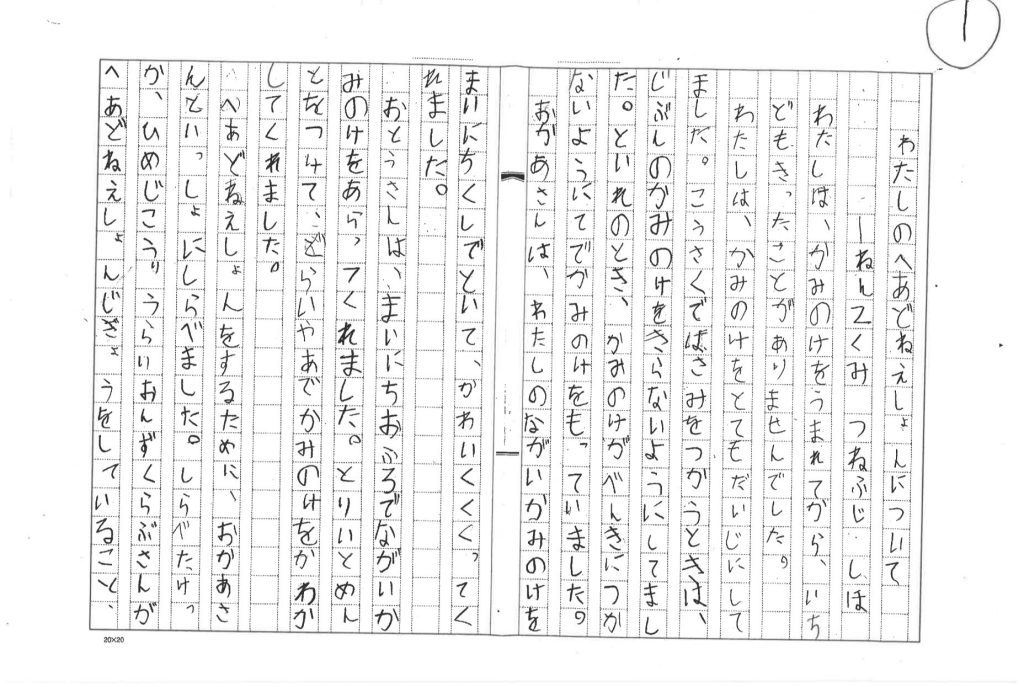 1
わたしのへあどねえしょんについて
一ねん2くみ つねふじ しほ
わたしは、かみのけをうまれてから、いち
どもきったことがありませんでした。
わたしは、かみのけをとてもだいじにして
ました。こうさくでばさみをつかうときは、
じぶんのかみのけをきらないようにしてまし
た。といれのとき、かみのけがべんきにつか
ないようにてでかみのけをもっていました。
おかあさんは、わたしのながいかみのけを
まいにちくしでといて、かわいくくくってく
れました。
おとうさんは、まいにちおふろでながいか
みのけをあらってくれました。とりいとめん
とをつけて、どらいやあでかみのけをかわか
してくれました。
へあどねえしょんをするために、おかあさ
んといっしょにしらべました。しらべたけっ
か、ひめじこうりつらいおんずくらぶさんが
へあどねえしょんじぎょうをしていること、
20×20